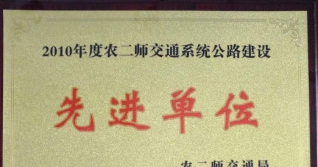 2010年度农二师交通系统公路建设
先进单位
农二师交通局